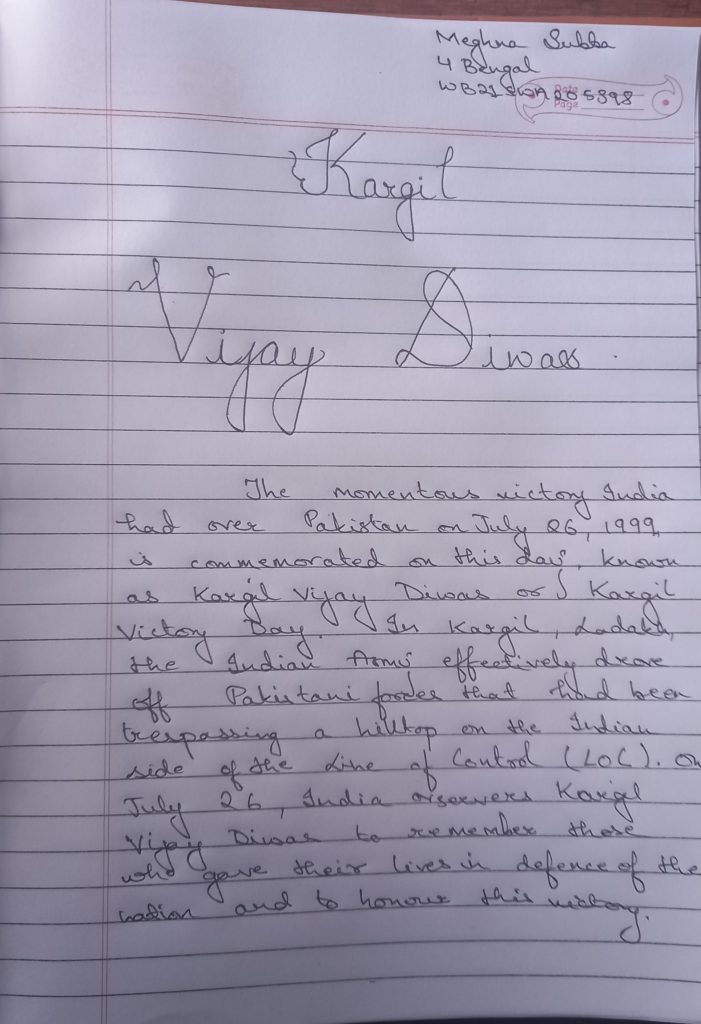 Meghna Subba
4 Bengal
WB21SWA205898
Date
Page
Kargil
Vijay Diwas
The momentous victory India
had over Pakistan on July 26, 1999,
is commemorated on this day, known
as Kargil Vijay Diwas or Kargil
Victory Day. In Kargil, Ladakh,
the Indian Army effectively drove
off Pakistani forces that had been
trespassing a hilltop on the Indian
side of the Line of Control (LOC). On
July 26, India observers Kargil
Vijay Diwas to remember those
who gave their lives in defence of the
nation and to honour this victory.